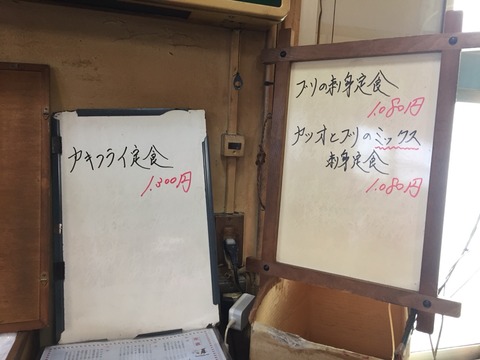 カキフライ定食
1.300円
ブリの刺身定食
1.080円
カツオとブリのミックス
刺身定食
1.080円